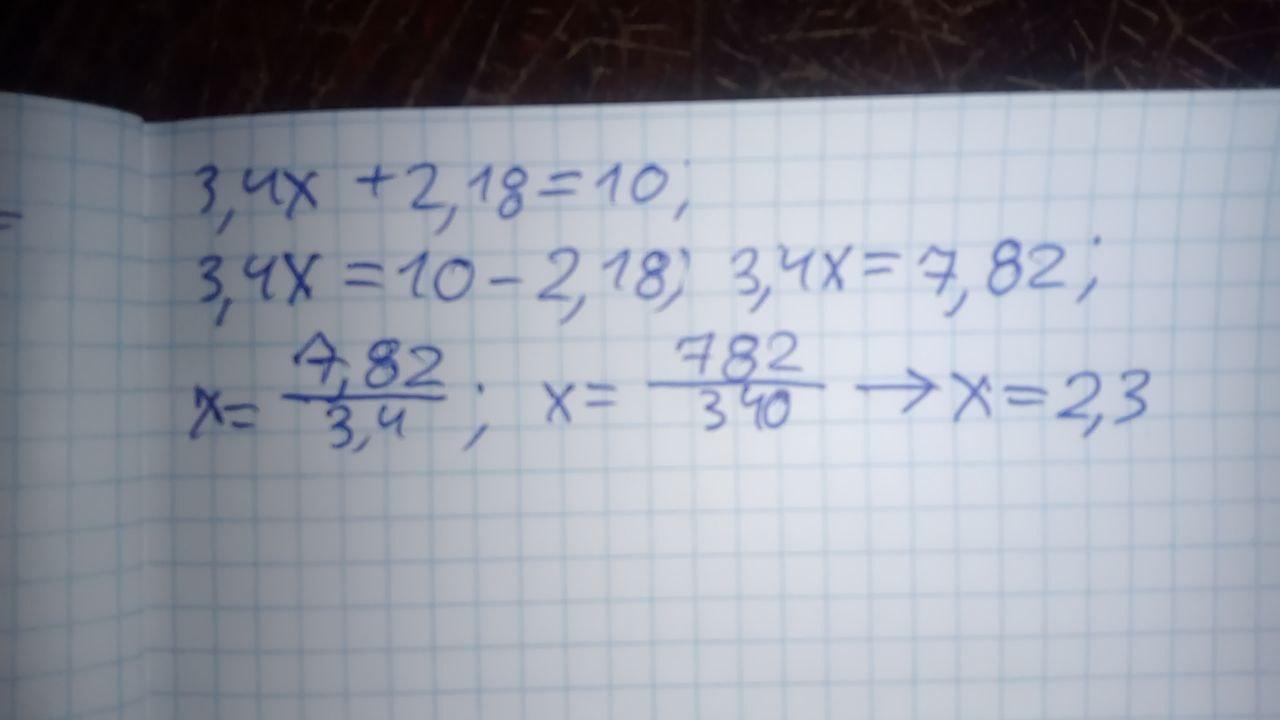 3,4x + 2,18 = 10;
3,4x = 10 - 2,18; 3,4x = 7,82;
x = 7,82/3,4; x = 782/340 → x = 2,3